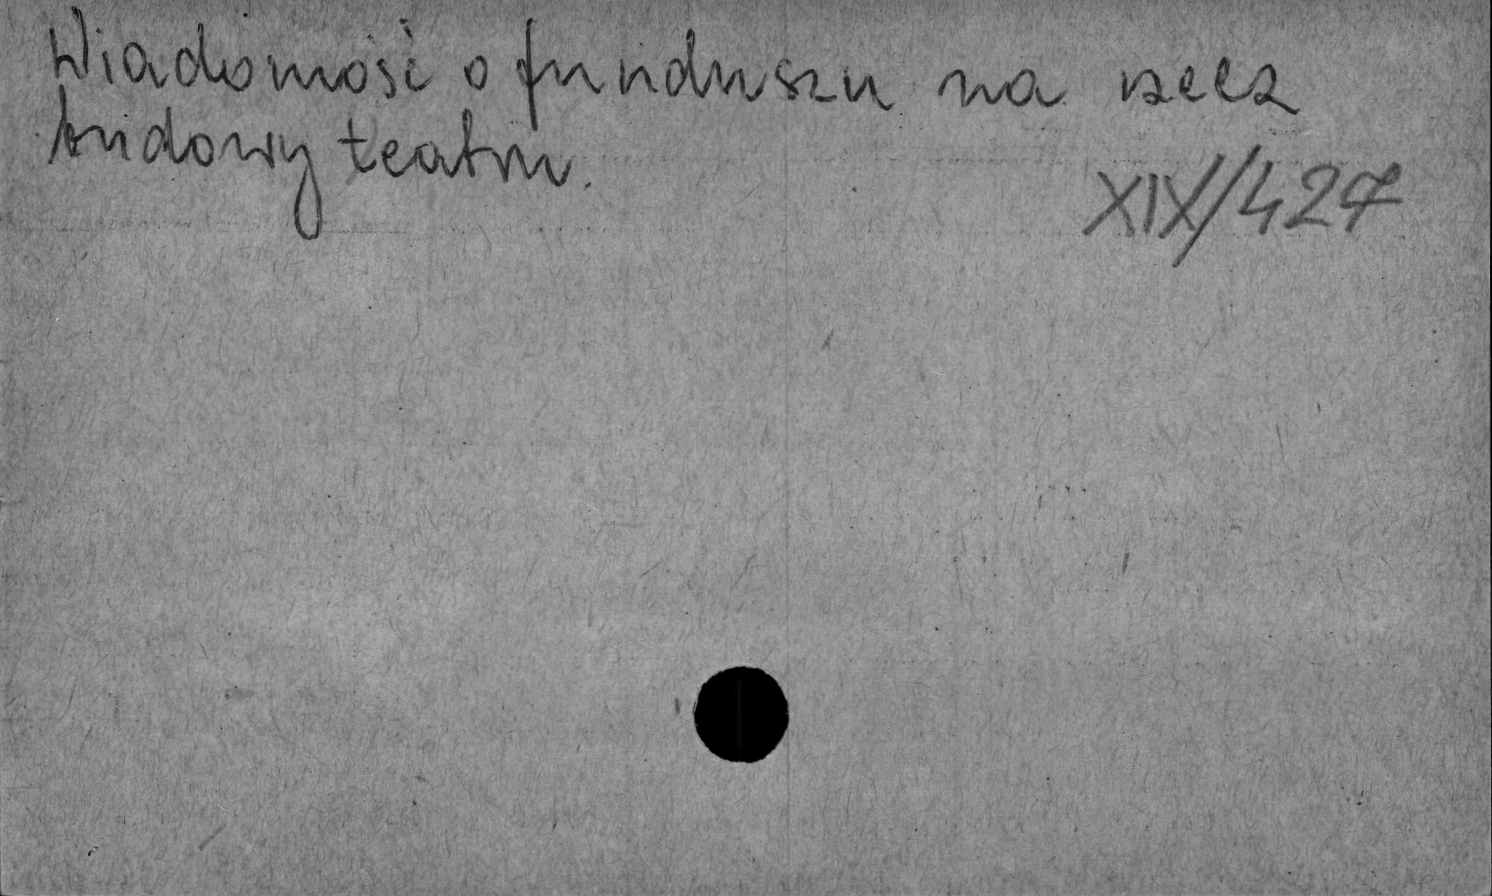 Wiadomość o funduszu na rzecz
budowy teatru.
XIX/427